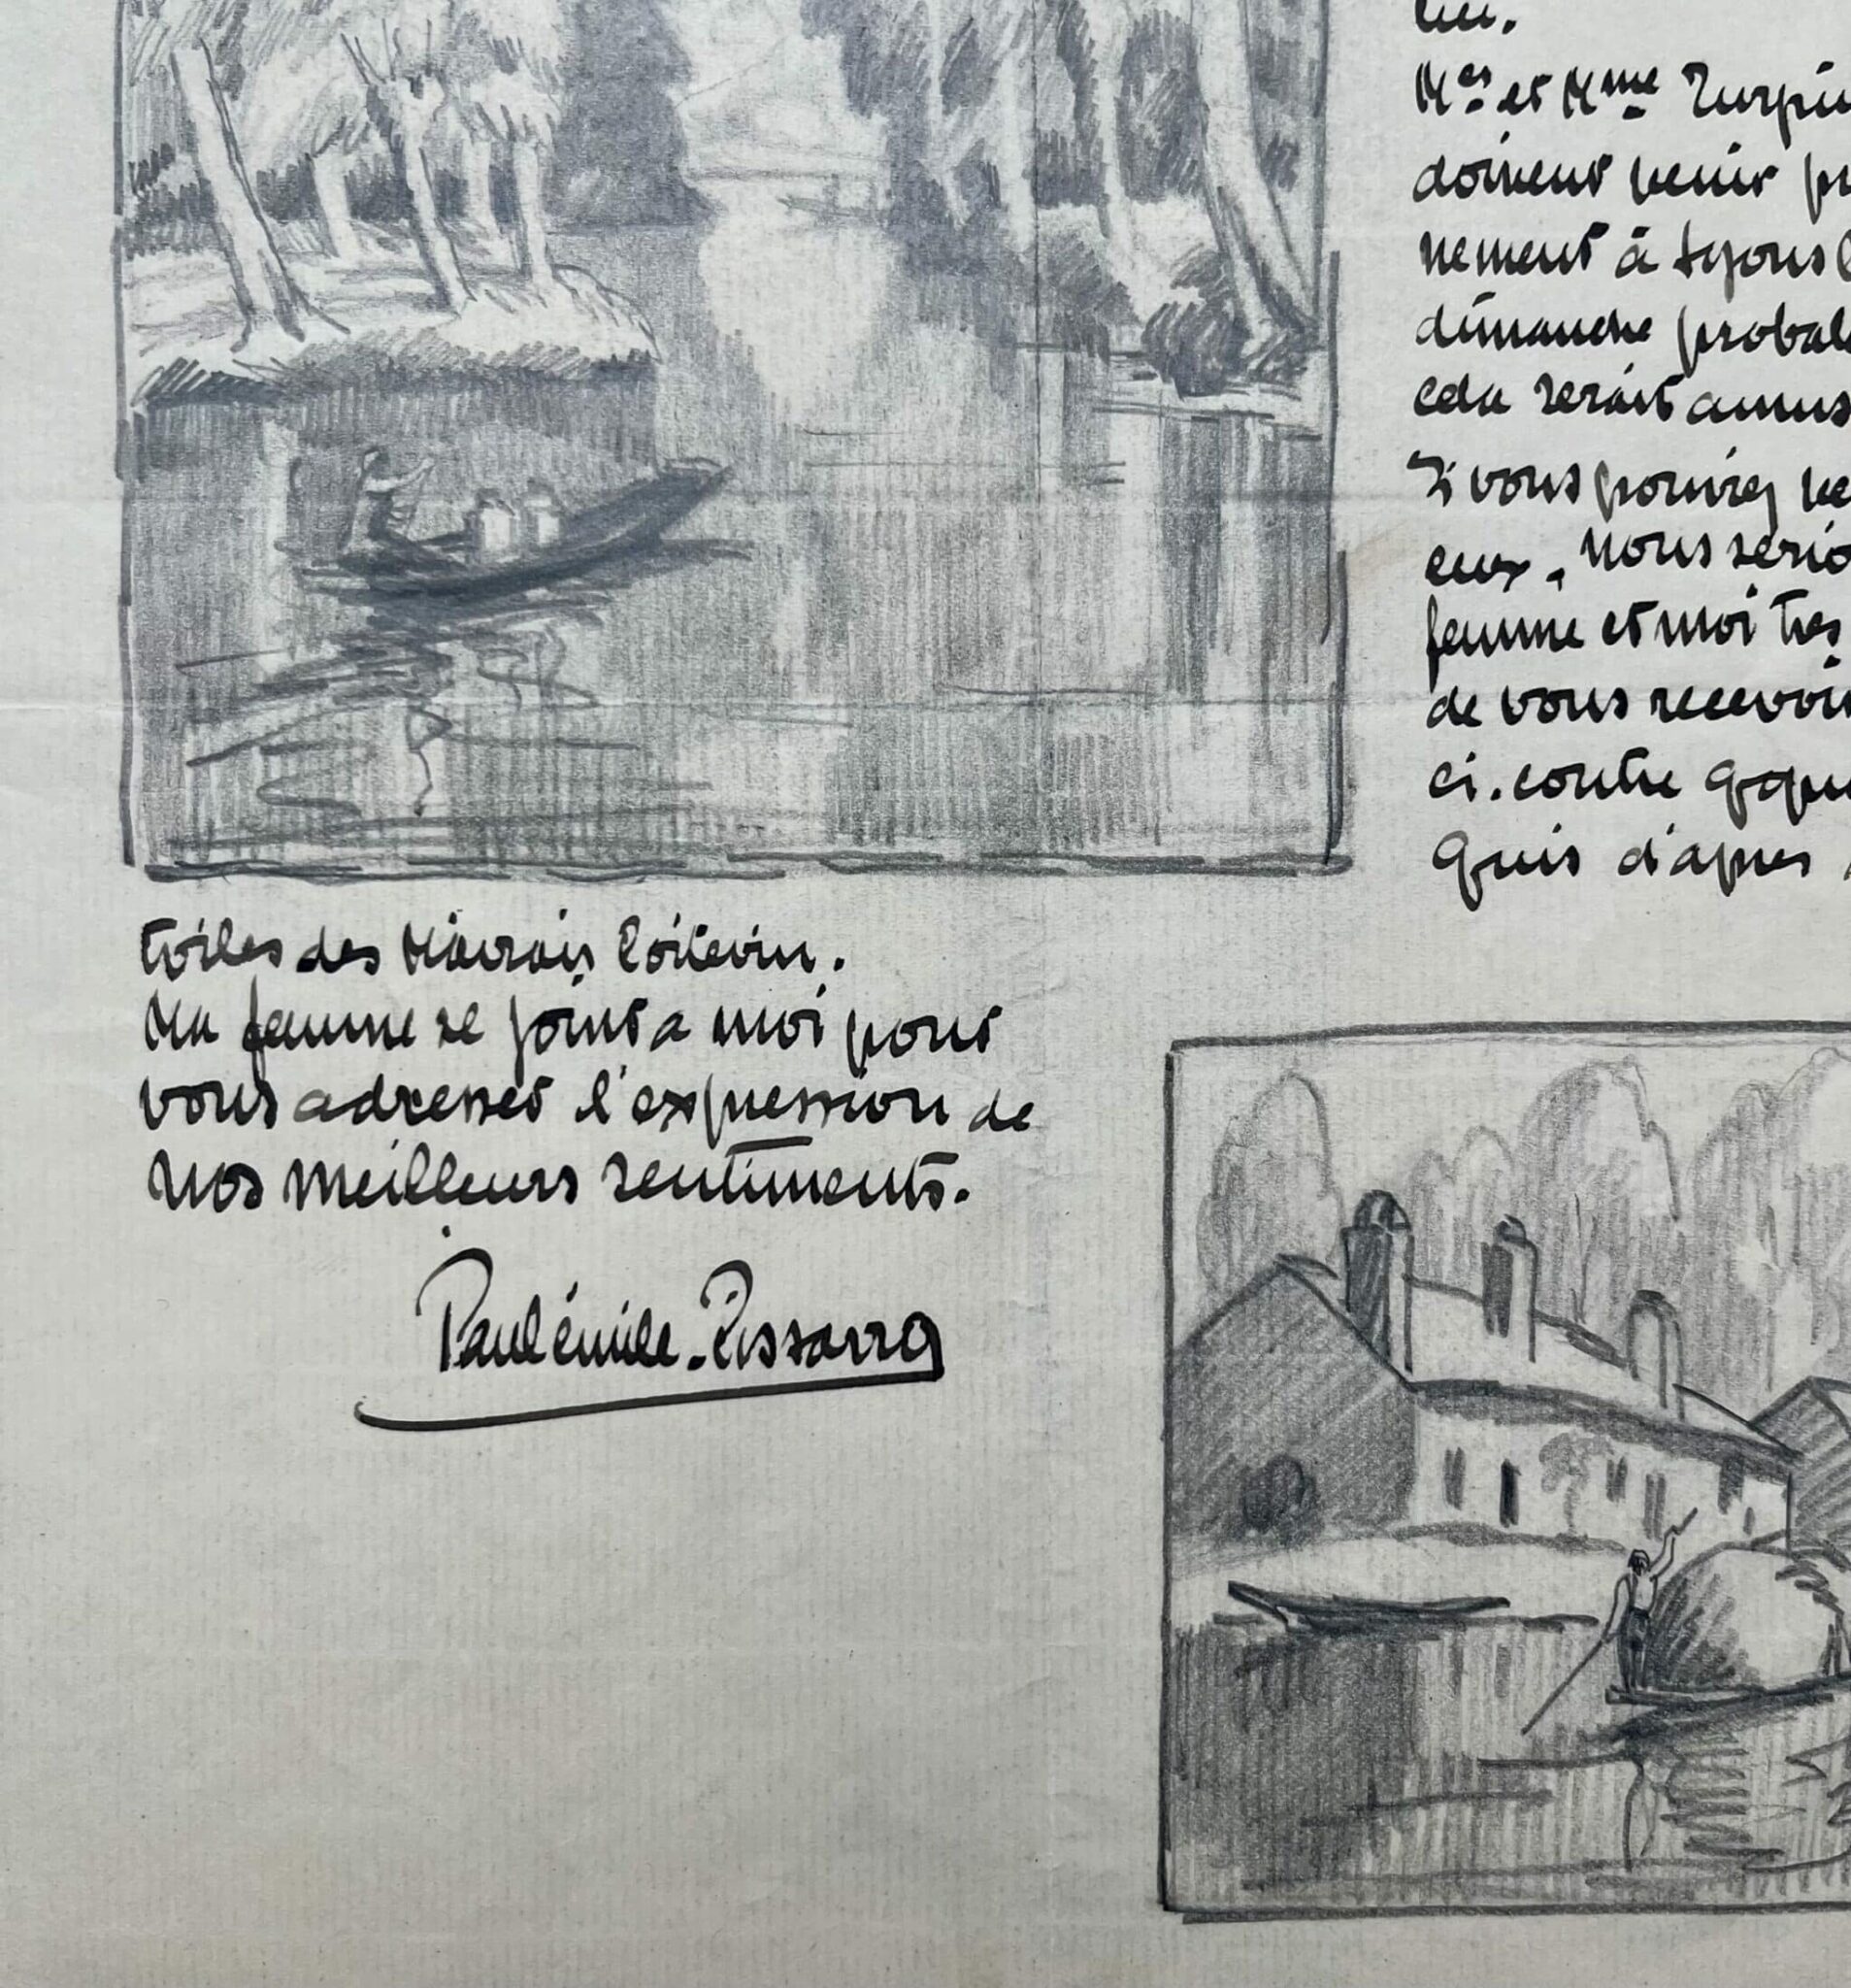 lieu.
Mr et Mme Turpin
doivent venir
nement à Lyons
dimanche
cela serait
Si vous pouviez
eux, nous
femme et moi très
de vous recevoir
ci. contre
quis d'après
toiles des Marais Poitevin.
Ma femme se joint a moi pour
vous adresser l'expression de
nos meilleurs sentiments.
Paulémile-Pissarro